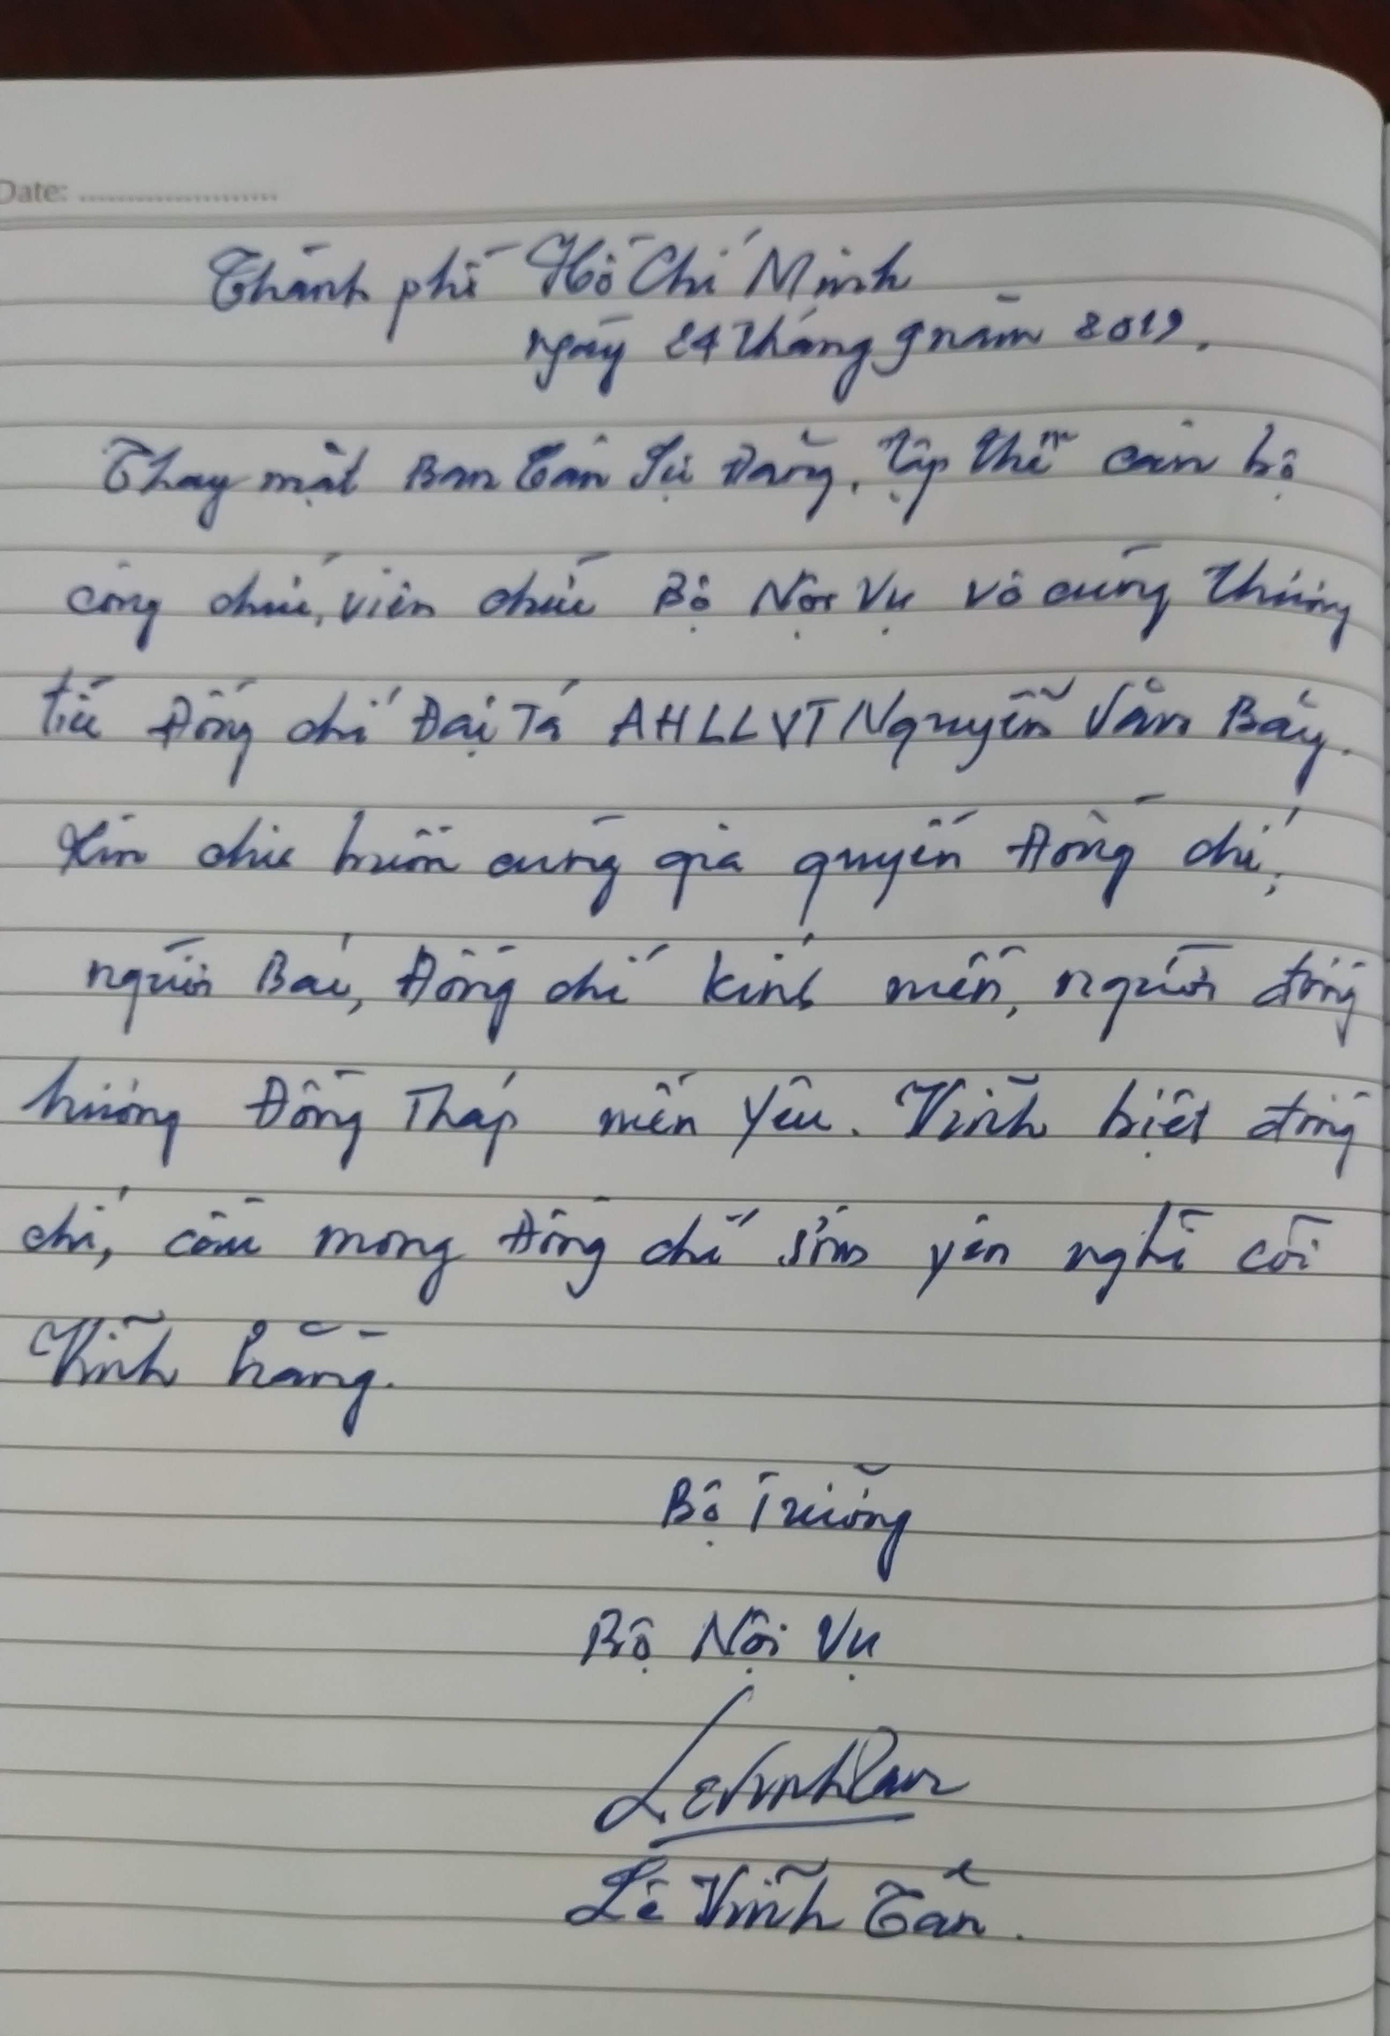 Date: ......................
Thành phố Hồ Chí Minh
ngày 24 tháng 9 năm 2019.
Thay mặt Ban Cán Sự Đảng, tập thể cán bộ
công chức, viên chức Bộ Nội Vụ vô cùng thương
tiếc Đồng chí Đại Tá AHLLVT Nguyễn Văn Bảy.
Xin chia buồn cùng gia quyến Đồng chí,
người Bác, Đồng chí kính mến, người đồng
hương Đồng Tháp mến yêu. Vĩnh biệt đồng
chí, cầu mong Đồng chí sớm yên nghỉ cõi
Vĩnh hằng.
Bộ Trưởng
Bộ Nội Vụ
Lê Vĩnh Tân.